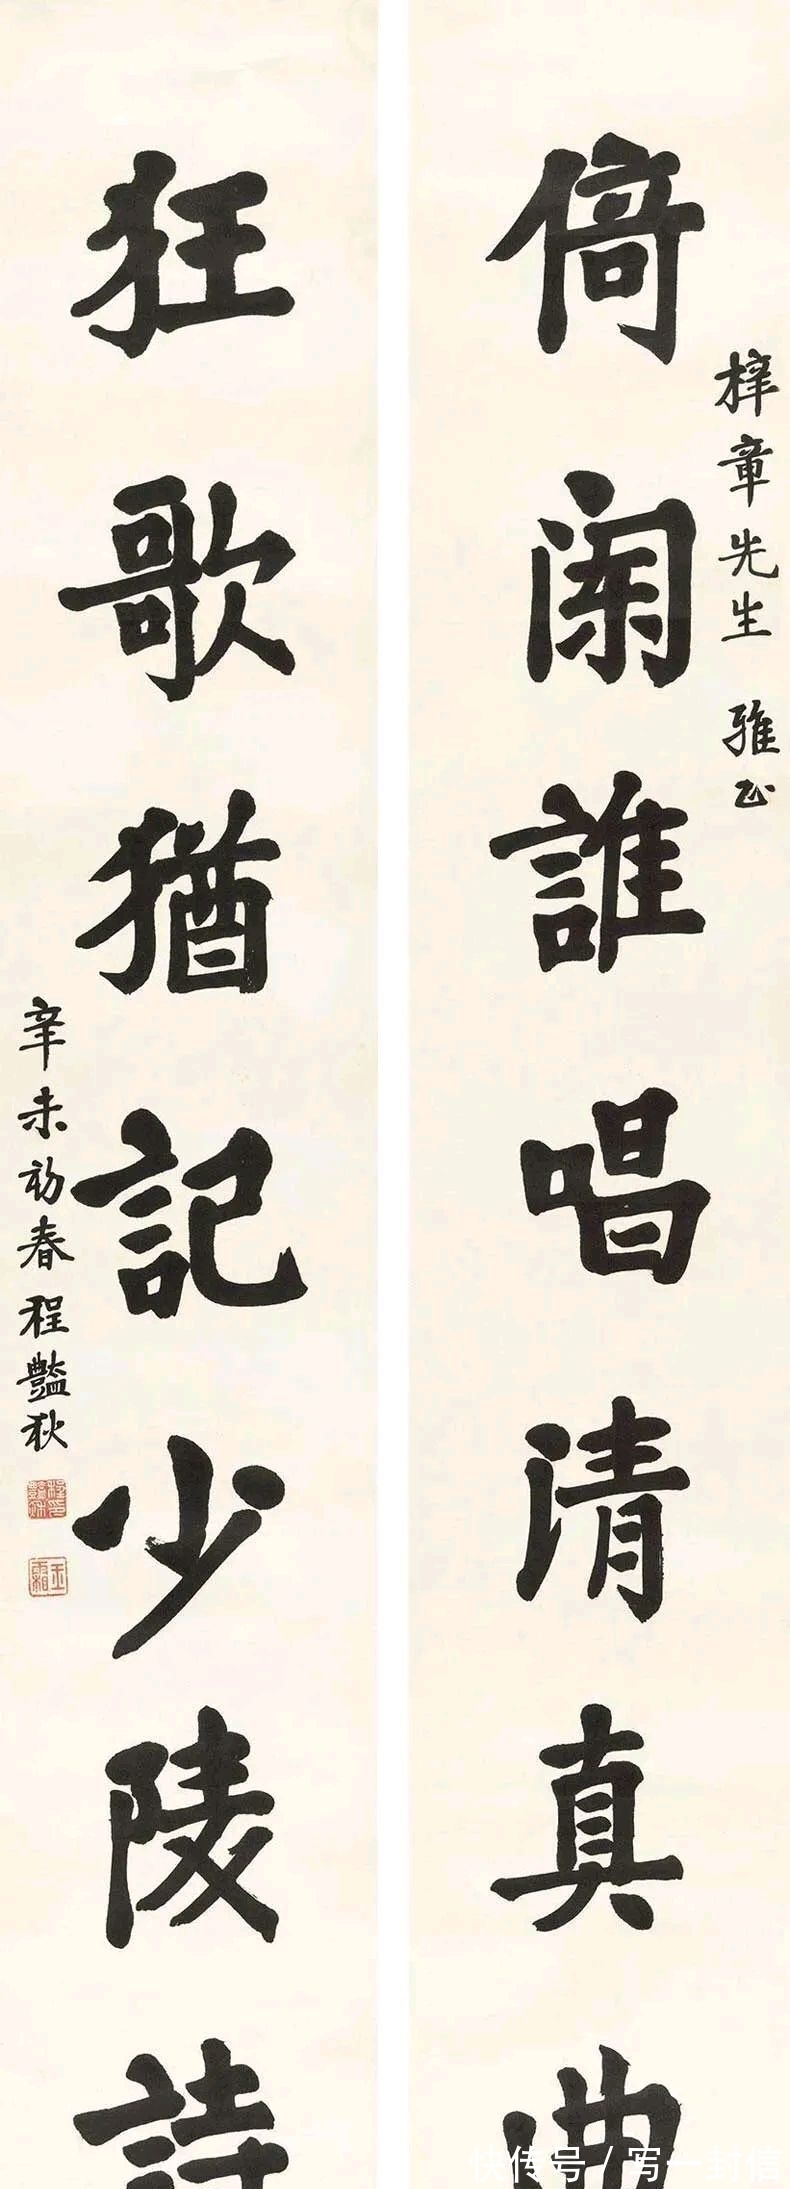 梓章先生 雅正
倚闌誰唱清真曲
狂歌猶記少陵詩
辛未初春程豔秋
玉霜
快传号 / 写一封信